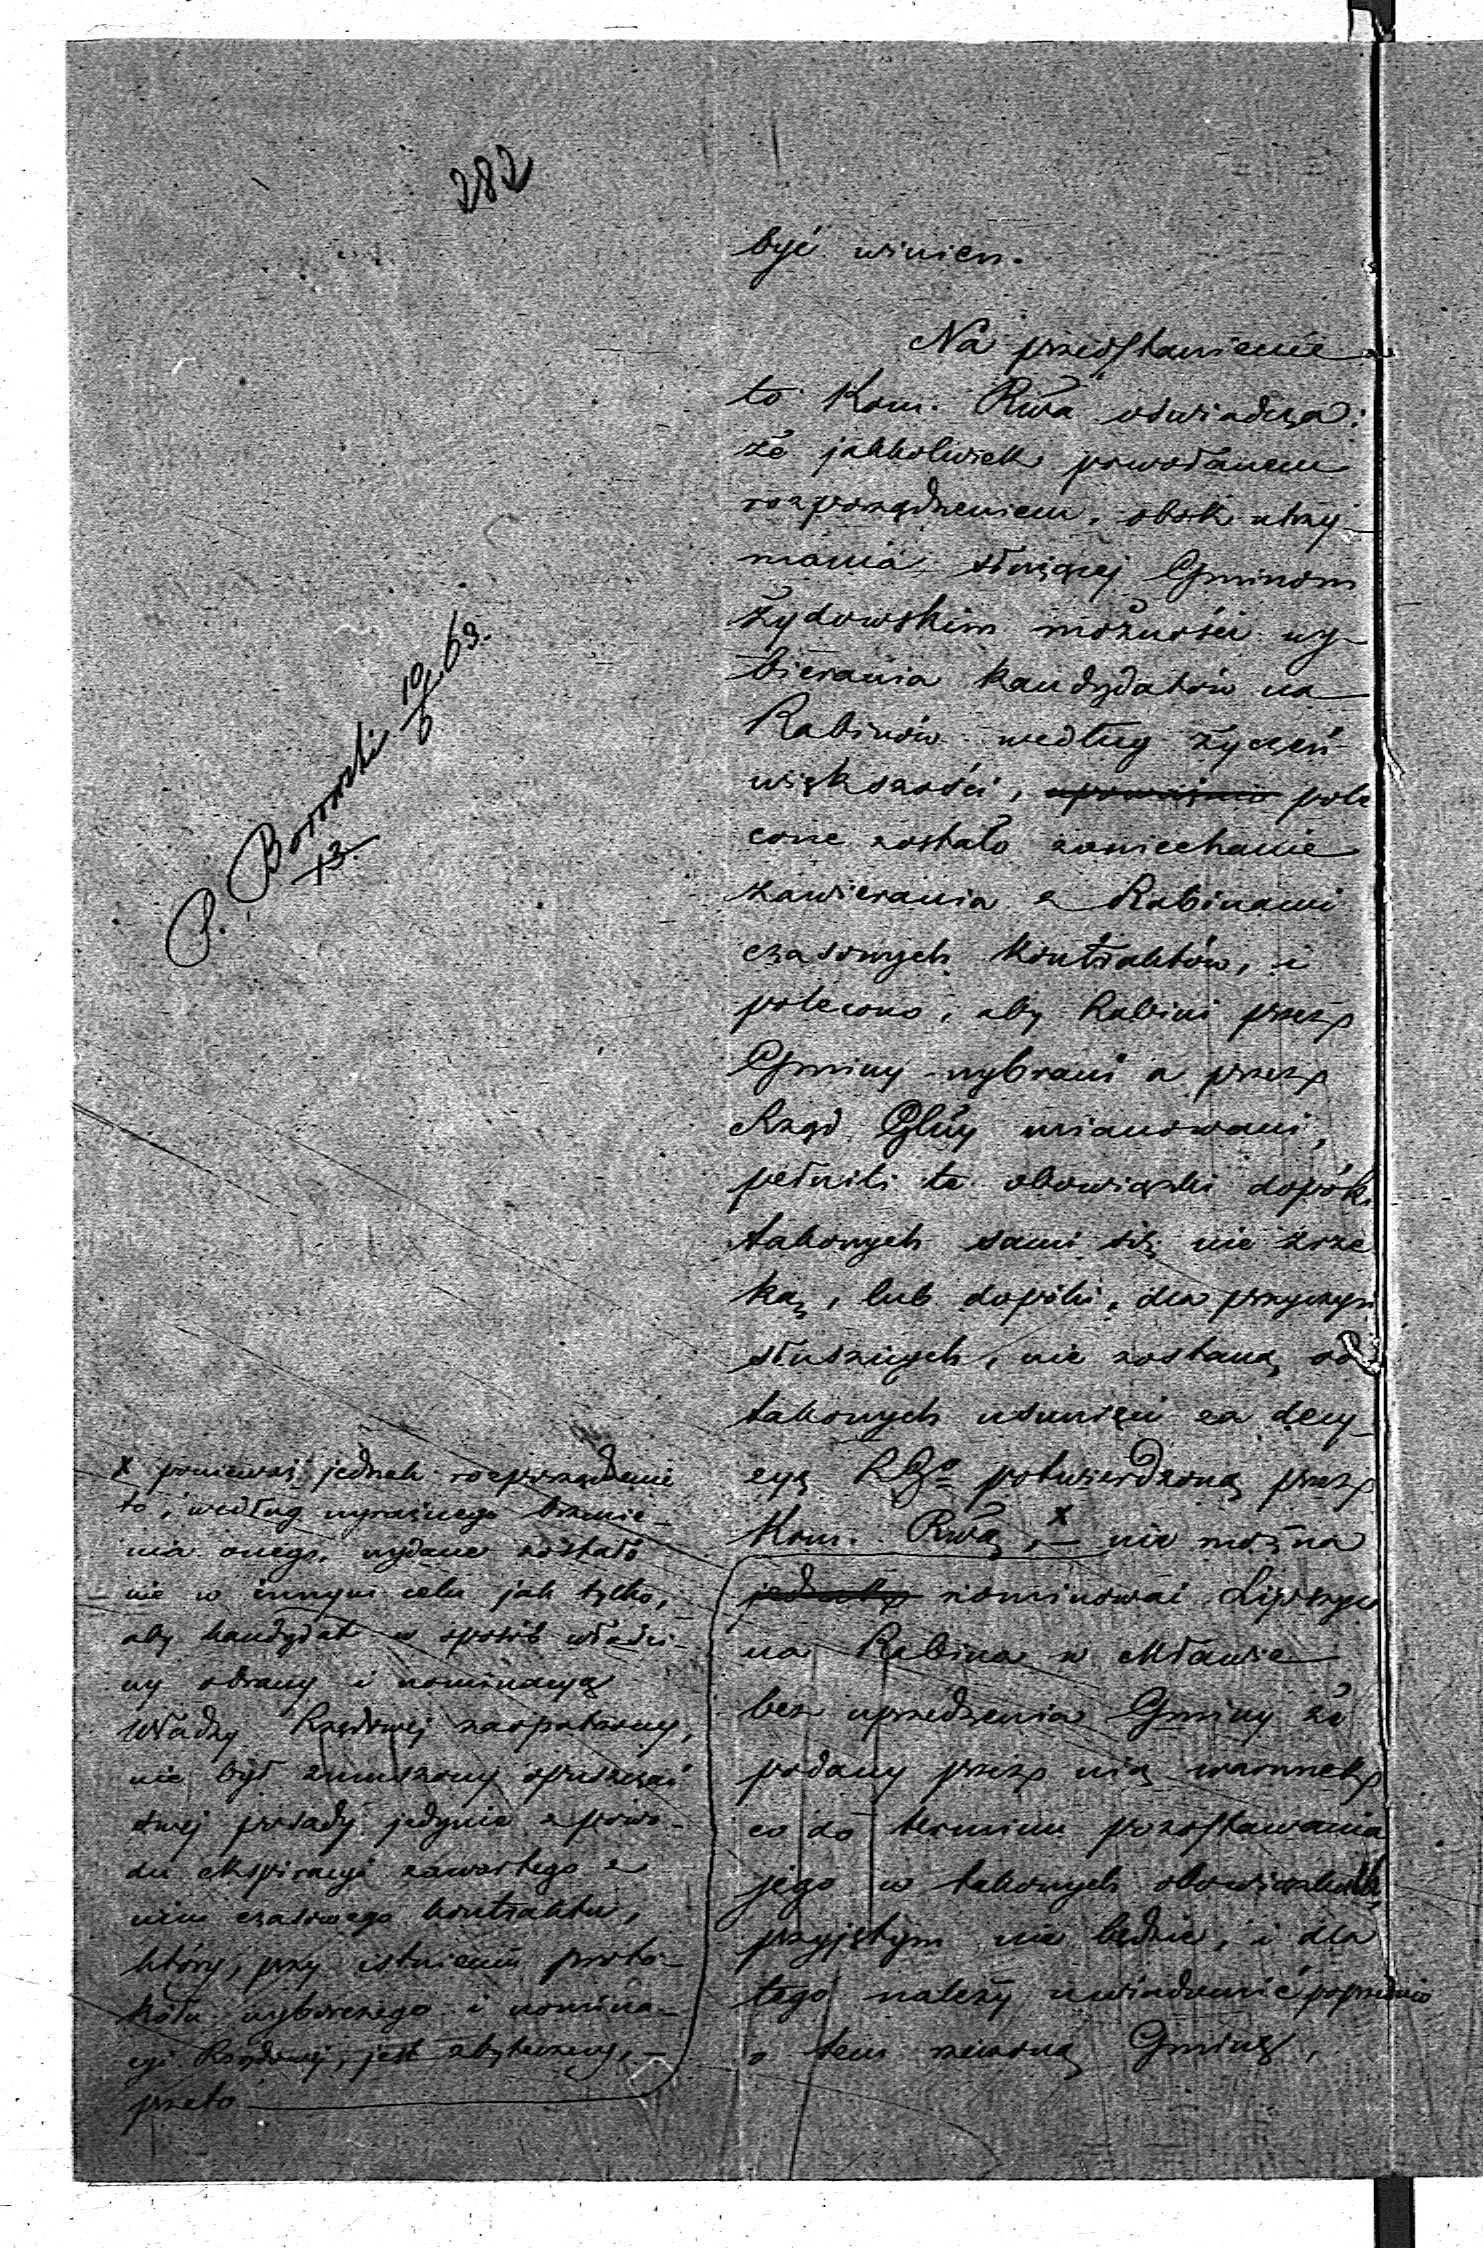 282
być winien.
Na przedstawienie
to Kom. Rwa oświadcza:
że jakkolwiek powołanem
rozporządzeniem, obok utrzy-
mania służącej Gminom
Żydowskim możności wy-
bierania kandydatów na
Rabinów według życzeń
większości, upoważnio pole
cone zostało zaniechanie
zawierania z Rabinami
czasowych kontraktów, i
polecono, aby Rabini przez
Gminy wybrani a przez
Rząd Glny mianowani,
pełnili te obowiązki dopóki
takowych sami się nie zrze
kną, lub dopóki, dla przyczyn
słusznych, nie zostaną od
takowych usunięci za decy-
zyą RGo potwierdzoną przez
Kom. Rwą, x – nie można
jednakże nominować Lipszyca
na Rabina w Mławie
bez uprzedzenia Gminy że
podany przez nią warunek
co do terminu pozostawania
jego w takowych obowiązkach,
przyjętym nie będzie, i dla
tego należy uwiadomić poprzednio
o tem rzeczoną Gminę,
P. Borowski 10/6 69.
13.
x ponieważ jednak rozporządzenie
to, według wyraźnego brzmie-
nia onego, wydane zostało
nie w innym celu jak tylko,
aby kandydat w sposób właści-
wy obrany i nominacyą
Władzy Rządowej zaopatrzony,
nie był zmuszony opuszczać
swej posady jedynie z powo-
du ekspiracyi zawartego z
nim czasowego kontraktu,
który, przy istnieniu proto-
kółu wyborczego i nomina-
cyi Rządowej, jest zbytecznym, –
przeto